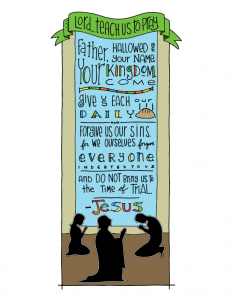 Lord, teach us to pray
Father,
HALLOWED be
YOUR NAME
YOUR KINGDOM
COME
GIVE US EACH OUR
DAILY
FORGIVE US OUR SINS.
for WE OURSELVES forgive
EVERYONE
INDEBTED TO US
AND DO NOT BRING US TO
the TIME of TRIAL.
-JESUS